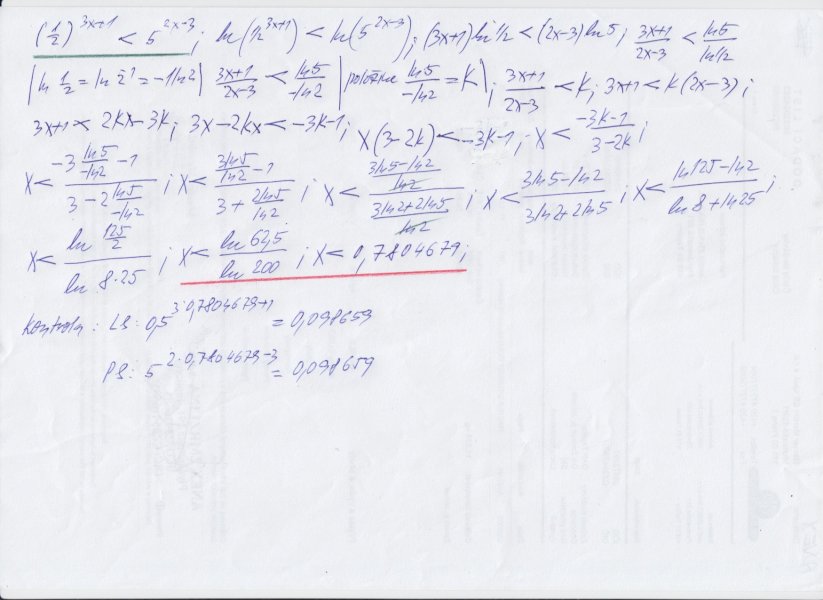 (1/2)^{3x+1} < 5^{2x-3}; ln(1/2^{3x+1}) < ln(5^{2x-3}); (3x+1)ln 1/2 < (2x-3)ln5; (3x+1)/(2x-3) < ln5/ln1/2
|ln 1/2 = ln 2^{-1} = -1ln2| (3x+1)/(2x-3) < ln5/-ln2 |položme ln5/-ln2 = K|; (3x+1)/(2x-3) < K; 3x+1 < K(2x-3);
3x+1 < 2Kx-3K; 3x-2Kx < -3K-1; x(3-2K) < -3K-1; x < (-3K-1)/(3-2K);
x < (-3 ln5/-ln2 -1)/(3-2 ln5/-ln2); x < (3ln5/ln2 -1)/(3+ 2ln5/ln2); x < ((3ln5-ln2)/ln2)/((3ln2+2ln5)/ln2); x < (3ln5-ln2)/(3ln2+2ln5); x < (ln125-ln2)/(ln8+ln25);
x < (ln 125/2)/(ln 8·25); x < (ln 62,5)/(ln 200); x < 0,7804679;
Kontrola: LS: 0,5^{3·0,7804679+1} = 0,098659
PS: 5^{2·0,7804679-3} = 0,098659